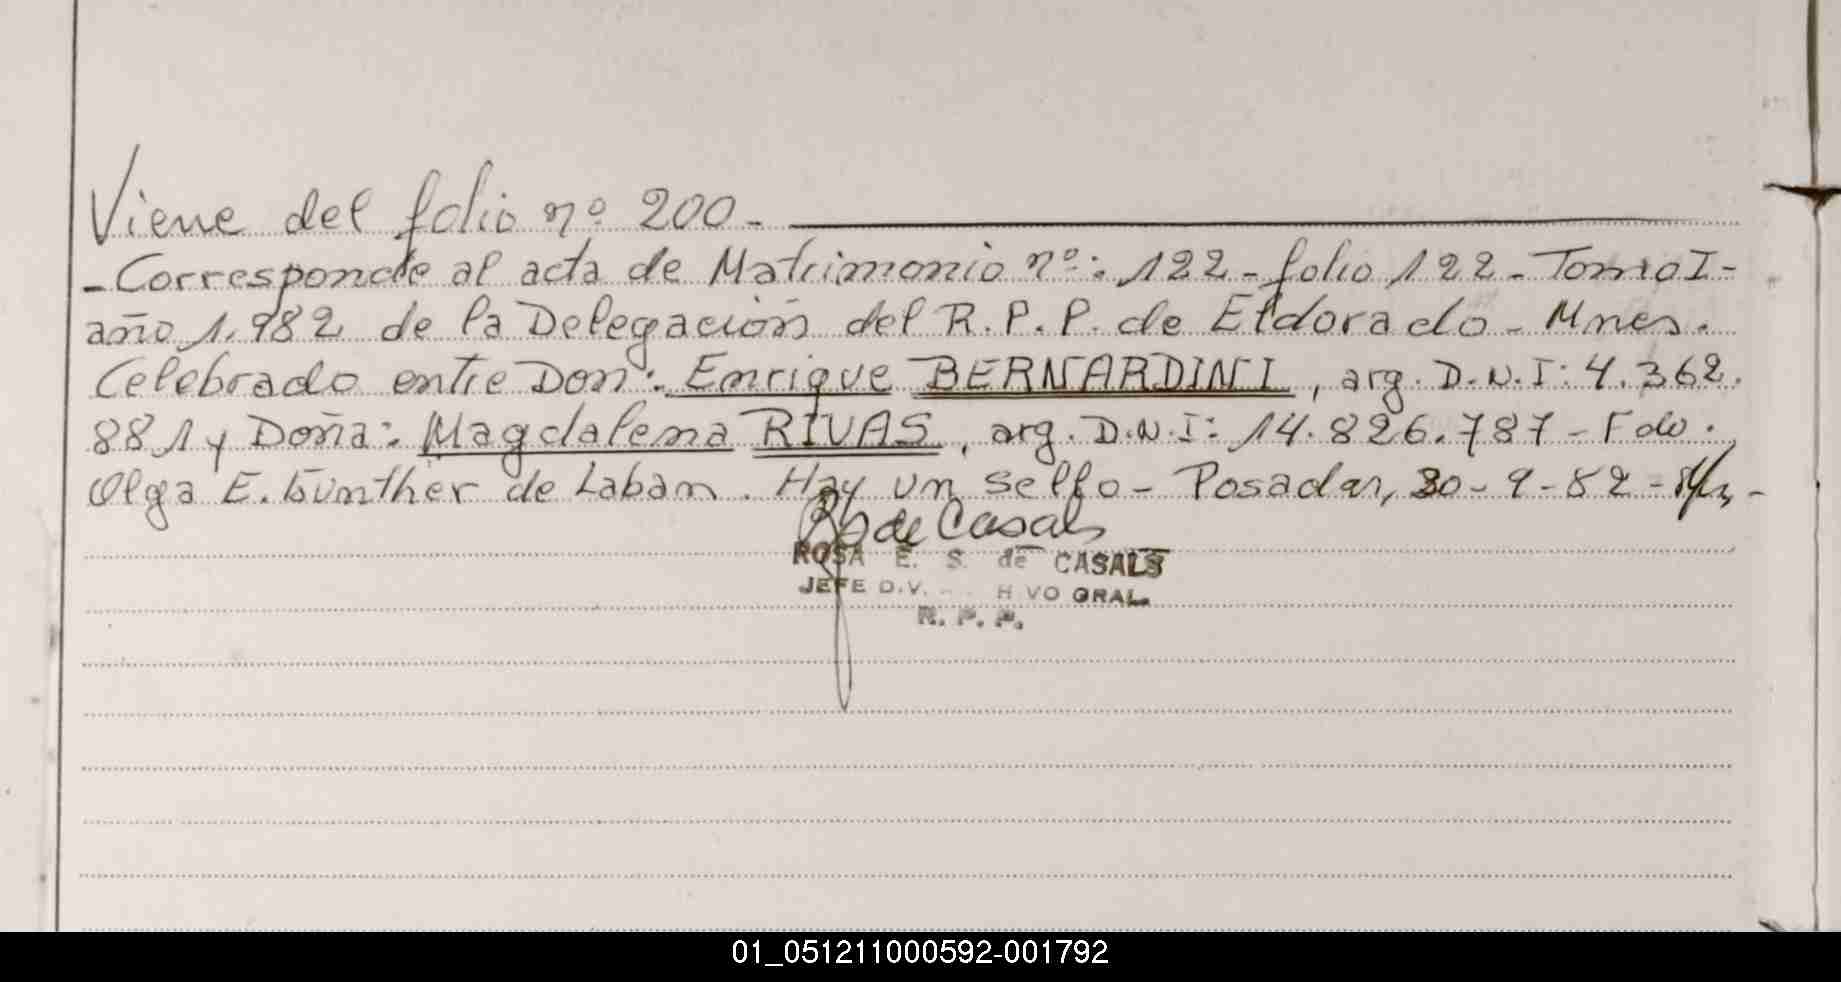 Viene del folio nº 200.-
- Corresponde al acta de Matrimonio nº: 122 - folio 122 - Tomo I -
año 1.982 de la Delegación del R.P.P. de Eldorado - Mnes.
Celebrado entre Don: Enrique BERNARDINI, arg. D.N.I: 4.362.
881 y Doña: Magdalena RIVAS, arg. D.N.I: 14.826.787 - Fdo.
Olga E. Günther de Laban. Hay un sello - Posadas, 30-9-82 -
de Casals
ROSA E. S. de CASALS
JEFE DIV. GRAL.
R. P. P.
01_051211000592-001792